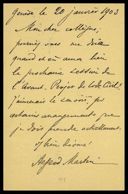 Genève le 20 janvier 1903
Mon cher collègue,
pourriez vous me dire
quand et où aura lieu
la prochaine session de
l'avant. Projet de Code Civil?
j'aimerais le savoir pr
certains arrangements que
je dois prendre actuellement.
bien dévoué
Alfred Martin